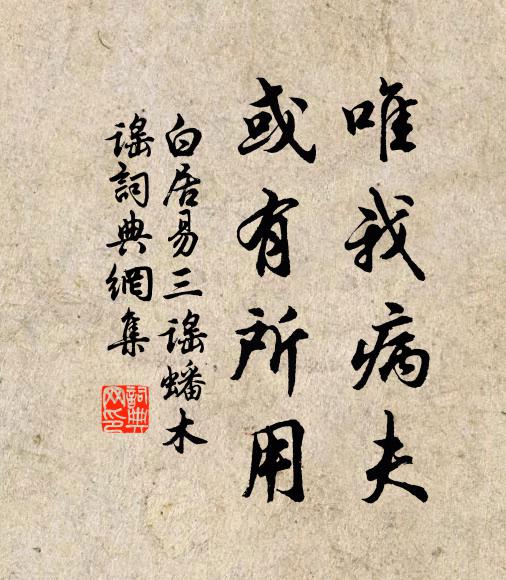 唯我病夫
或有所用
白居易三谣蟠木
谣詞典網集
詞典网印